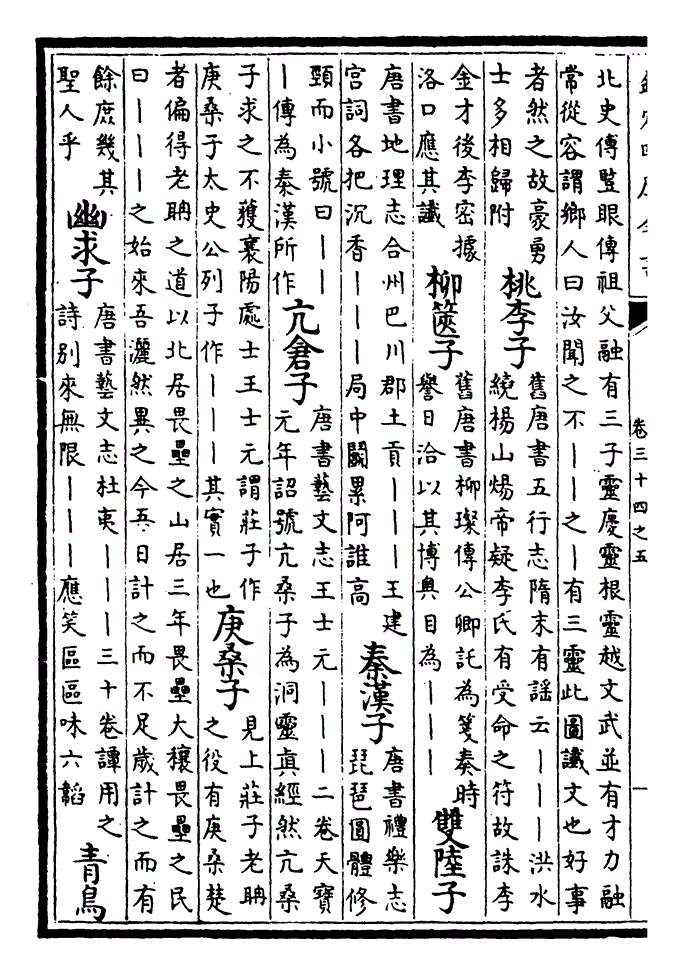 卷三十四之五
一
北史傅豎眼傳祖父融有三子靈慶靈根靈越文武並有才力融
常從容謂鄉人曰汝聞之不｜｜之｜有三靈此圖讖文也好事
者然之故豪勇
士多相歸附
桃李子
舊唐書五行志隋末有謡云｜｜｜洪水
繞楊山煬帝疑李氏有受命之符故誅李
金才後李密據
洛口應其讖
柳篋子
舊唐書柳璨傳公卿託為箋奏時
譽日洽以其博奥目為｜｜｜
雙陸子
唐書地理志合州巴川郡土貢｜｜｜王建
宫詞各把沉香｜｜｜局中鬭累阿誰高
秦漢子
唐書禮樂志
琵琶圓體修
頸而小號曰｜｜
｜傳為秦漢所作
亢倉子
唐書藝文志王士元｜｜｜二卷天寶
元年詔號亢桑子為洞靈真經然亢桑
子求之不獲襄陽處士王士元謂莊子作
庚桑子太史公列子作｜｜｜其實一也
庚桑子
見上莊子老聃
之役有庚桑楚
者偏得老聃之道以北居畏壘之山居三年畏壘大穰畏壘之民
曰｜｜｜之始來吾灑然異之今吾日計之而不足歲計之而有
餘庶幾其
聖人乎
幽求子
唐書藝文志杜夷｜｜｜三十卷譚用之
詩別來無限｜｜｜應笑區區味六韜
青鳥